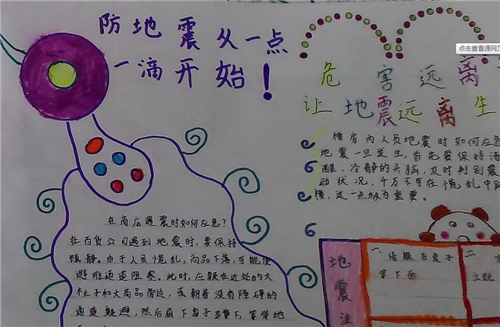 防地震从一点
一滴开始！
危害远离
让地震远离生
点击查看源网页
楼房内人员地震时如何应急？
地震一旦发生，首先要保持清
醒、冷静的头脑，及时判别震
动状况，千万不可在慌乱中
楼，这一点极为重要。
在商店遇震时如何应急？
在百货公司遇到地震时，要保持
镇静。由于人员慌乱，商品下落，可能使
避难通道阻塞。此时，应躲在近处的大
柱子和大商品旁边，或朝着没有障碍的
通道躲避，然后屈下身子蹲下，等待地
地震
一
桌子
下面
二